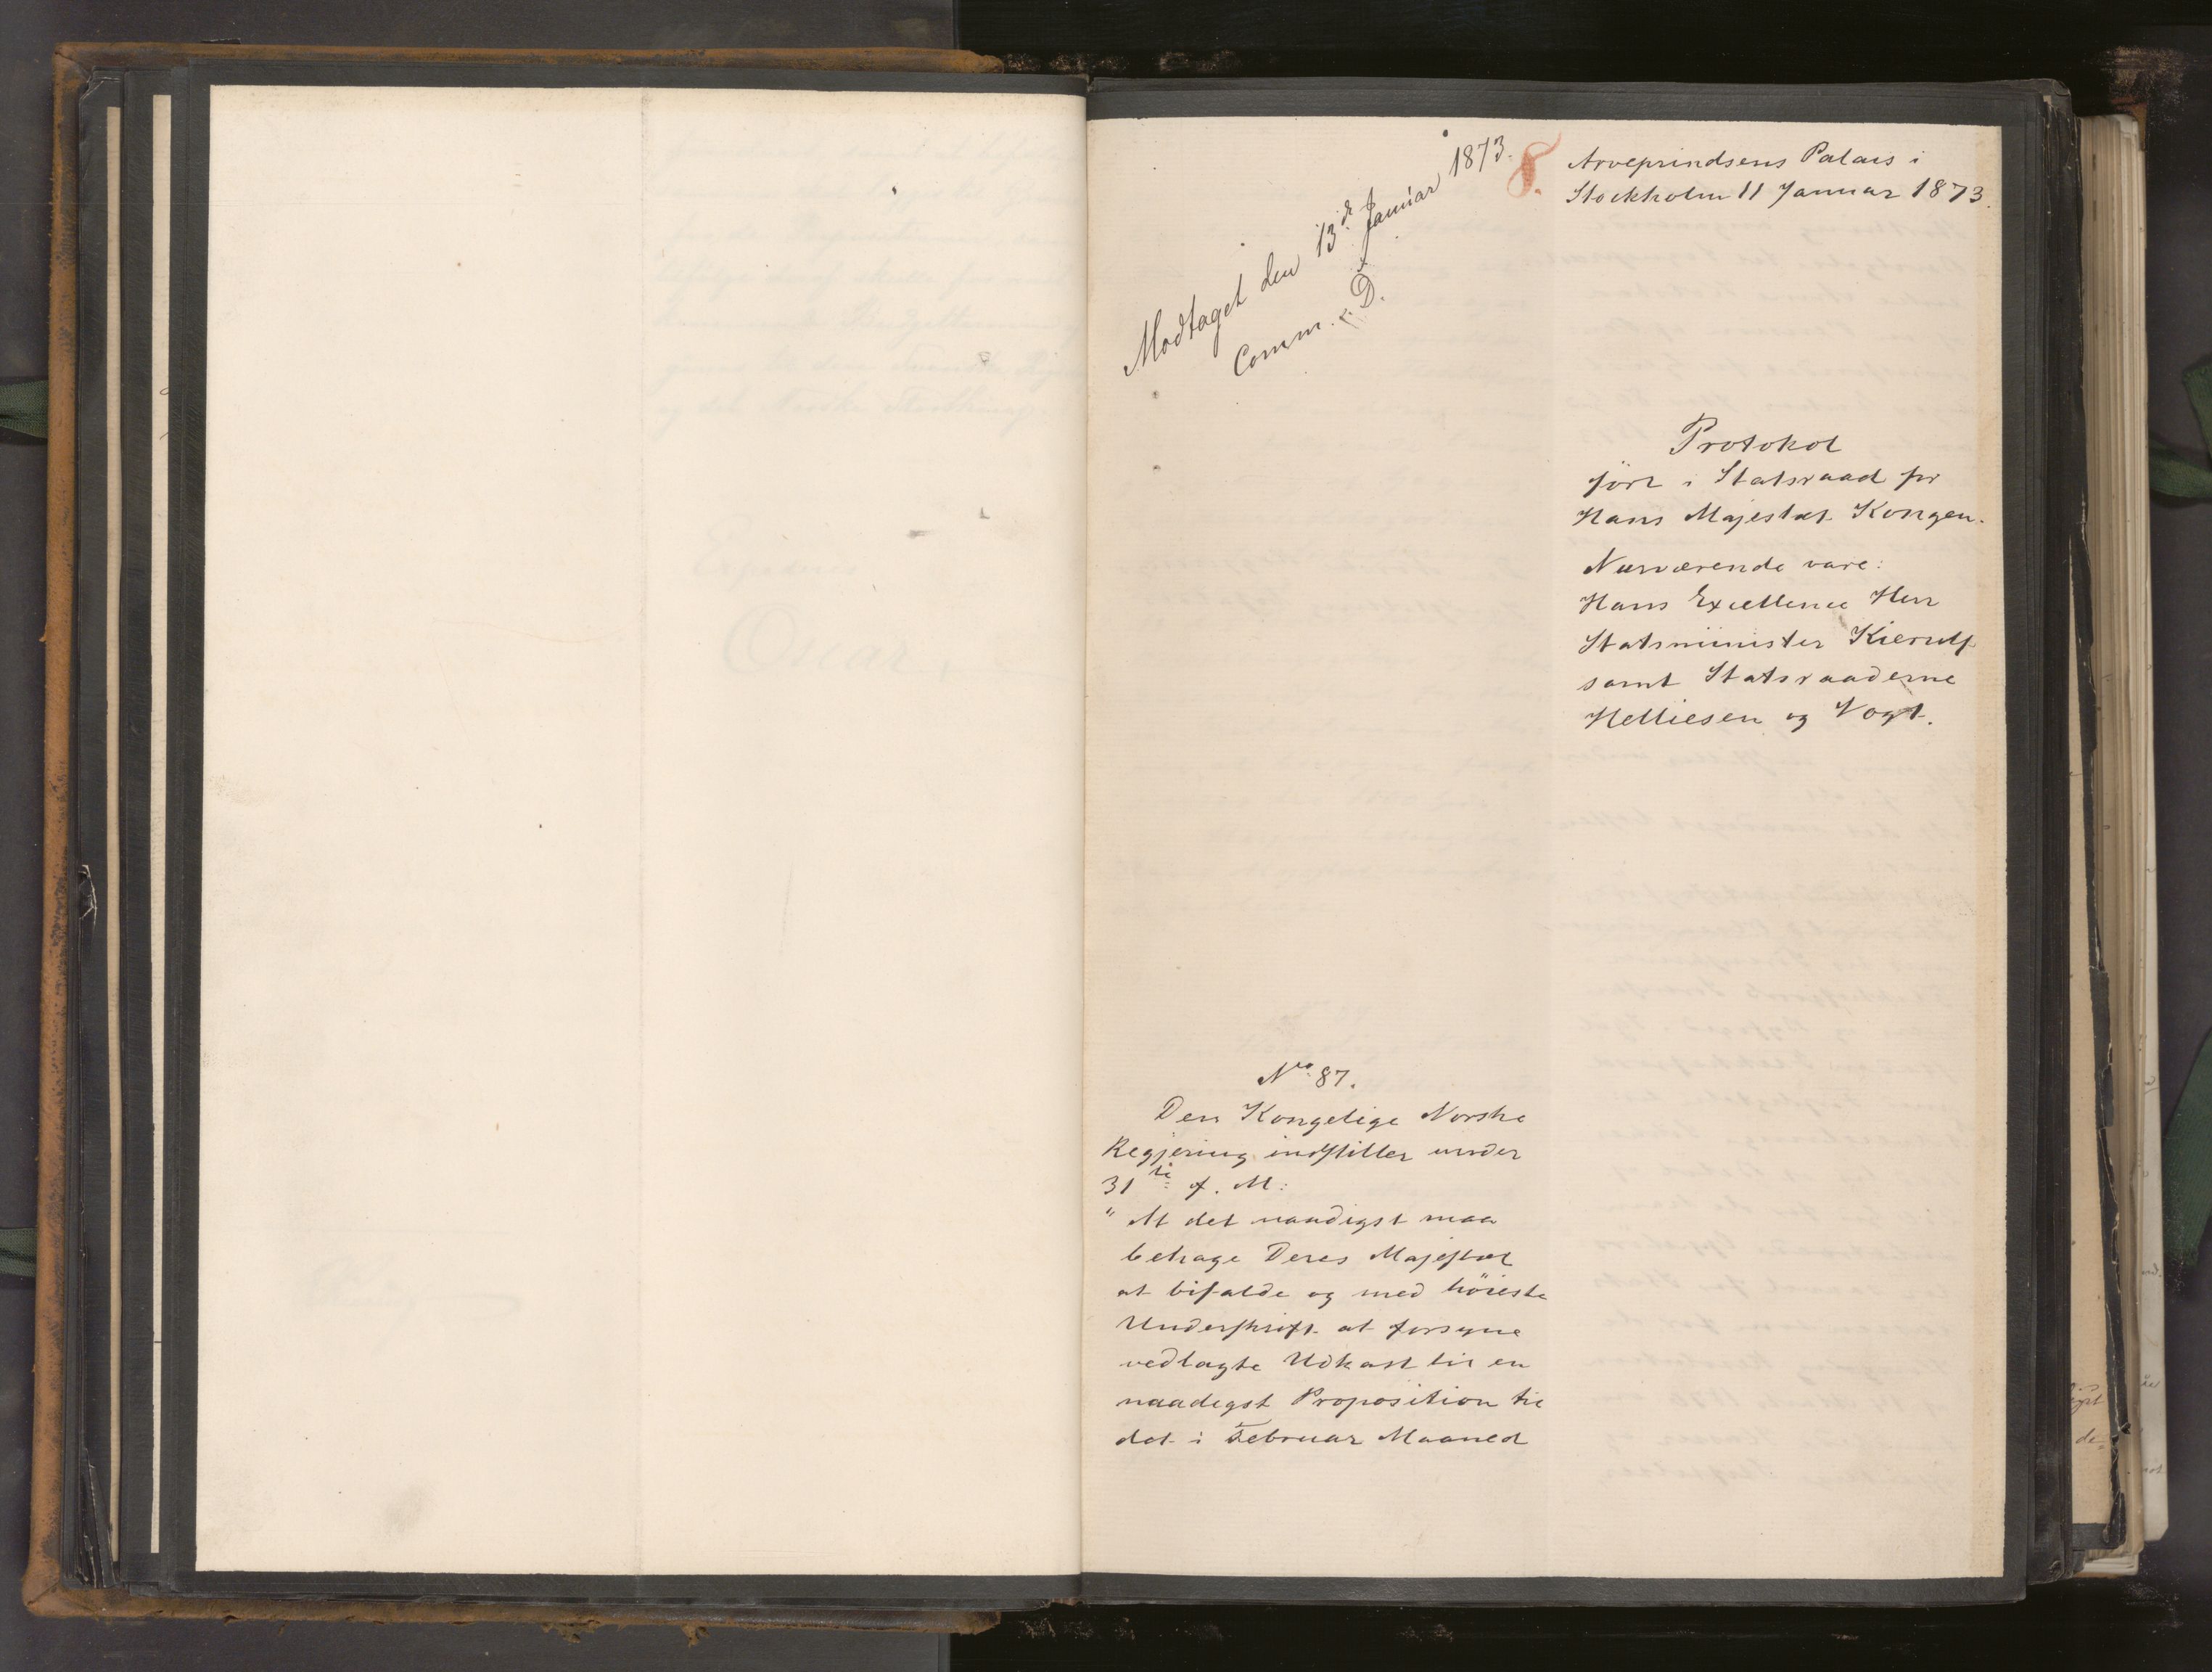 Modtaget den 13de Januar 1873.
Comm. D.
8.
Arveprindsens Palais i
Stockholm 11 Januar 1873.
Protokol
ført i Statsraad for
Hans Majestæt Kongen.
Nærværende vare:
Hans Excellence Herr
Statsminister Kierulf
samt Statsraaderne
Helliesen og Vogt.
No 87.
Den Kongelige Norske
Regjering indstiller under
31te f. M:
"At det naadigst maa
behage Deres Majestæt
at bifalde og med höieste
Underskrift at forsyne
vedlagte Udkast til en
naadigst Proposition til
det i Februar Maaned